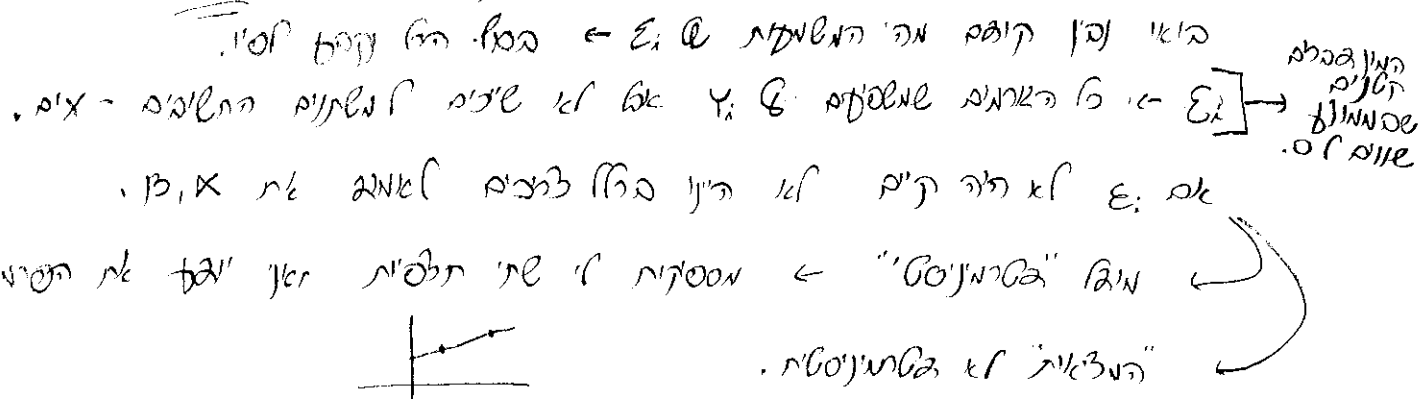 בואי נבין קודם מה המשמעות של εᵢ ← בסוף הדף נקרא לסיו.
εᵢ ← כל הגורמים שמשפיעים על Yᵢ אבל לא שייכים למשתנים החשובים - X-ים.
המון דברים
קטנים
שבממוצע
שווים ל 0.
אם εᵢ לא היה קיים לא היינו בכלל צריכים לאמוד את α, β.
מודל "דטרמיניסטי" ← מספיקות לי שתי תצפיות ואני יודע את הפרמ
"המציאות" לא דטרמיניסטית.